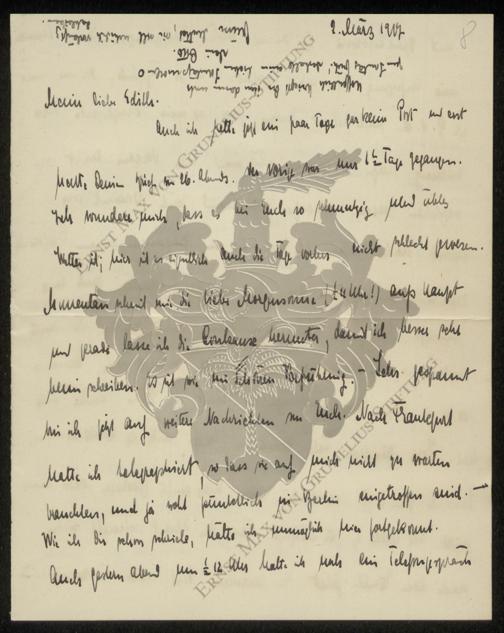 2. März 1917
8
Mein liebe Edith.
Auch ich hatte jetzt ein paar Tage gar keine Post und erst
heute Deinen Brief vom 26. abends. Der vorige war nur 1½ Tage gegangen.
Ich wundere mich, dass es bei Euch so schmutzig und übles
Wetter ist; hier ist es eigentlich auch die Tage vorher nicht schlecht gewesen.
Momentan scheint mir die liebe Morgensonne aufs Haupt
und gerade lasse ich die herunter, damit ich besser sehe
beim Schreiben. Es ist wie im Befreiung. – Sehr gespannt
bin ich jetzt auf weitere Nachrichten von Euch. Nach Frankfurt
hatte ich telegraphiert, so dass sie auf mich nicht zu warten
brauchten, und ja wohl pünktlich in Berlin eingetroffen sind. –
Wie ich Dir schon schrieb, hätte ich unmöglich hier fortgekonnt.
Auch gestern abend um ½ 12 Uhr hatte ich noch ein Telefongespräch
ERNST MAX VON GRUNELIUS-STIFTUNG
ERNST MAX VON GRUNELIUS-STIFTUNG